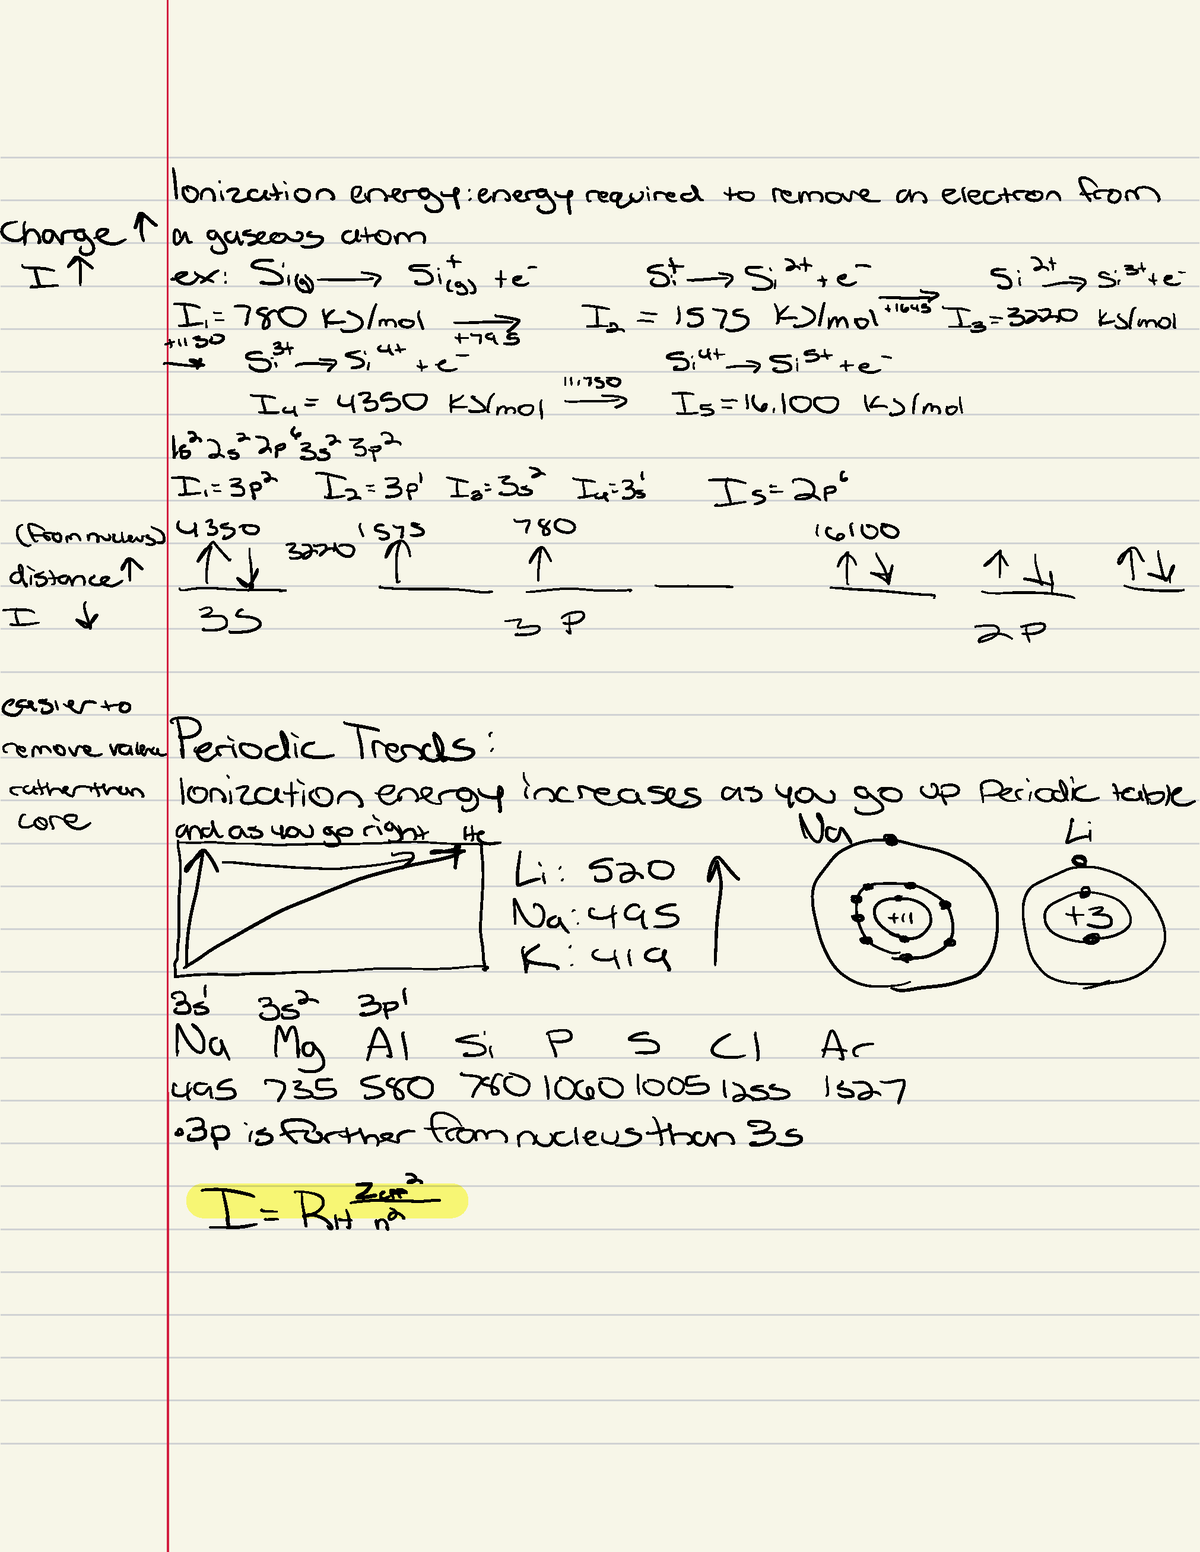 Ionization energy: energy required to remove an electron from
Charge ↑ a gaseous atom
I ↑ ex: Si(g) → Si(g)⁺ + e⁻ Si⁺ → Si²⁺ + e⁻ Si²⁺ → Si³⁺ + e⁻
I₁ = 780 KJ/mol → +795 I₂ = 1575 KJ/mol +1645 → I₃ = 3220 KJ/mol
+1130 → Si³⁺ → Si⁴⁺ + e⁻ Si⁴⁺ → Si⁵⁺ + e⁻
I₄ = 4350 KJ/mol 11,750 → I₅ = 16,100 KJ/mol
1s² 2s² 2p⁶ 3s² 3p²
I₁ = 3p² I₂ = 3p¹ I₃ = 3s² I₄ = 3s¹ I₅ = 2p⁶
(from nucleus) 4350 3220 1575 780 16100
distance ↑ ↑ ↓ ↑ ↑ ↑ ↓ ↑ ↓ ↑ ↓
I ↓ 3S 3 P 2 P
easier to
remove valence Periodic Trends:
rather than Ionization energy increases as you go up Periodic table
core and as you go right He Na Li
Li: 520
Na: 495 +11 +3
K: 419
3s¹ 3s² 3p¹
Na Mg Al Si P S Cl Ar
495 735 580 780 1060 1005 1255 1527
• 3p is further from nucleus than 3s
I = R_H Zeff²/n²